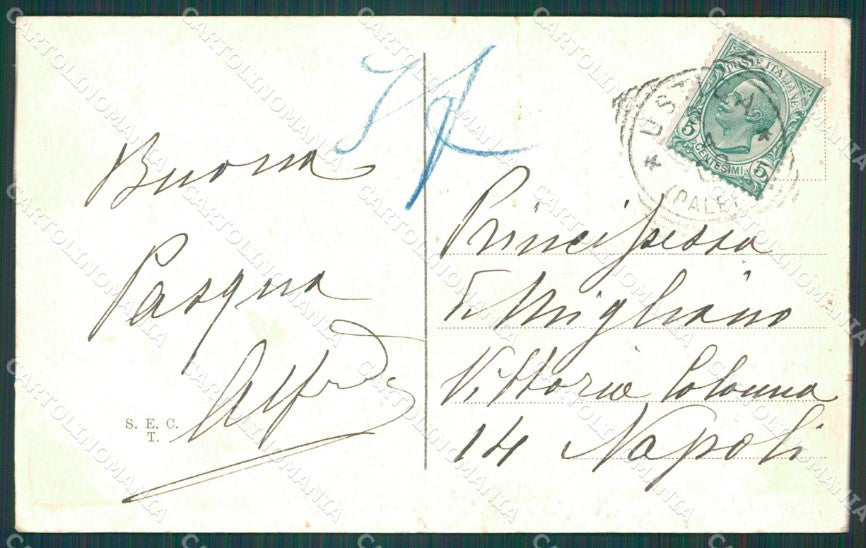 Buona
Pasqua
Alfredo
S. E. C.
T.
USTICA
(PALE
POSTE ITALIANE
5 CENTESIMI 5
Principessa
Migliano
Vittoria Colonna
14 Napoli
CARTOLINOMANIA